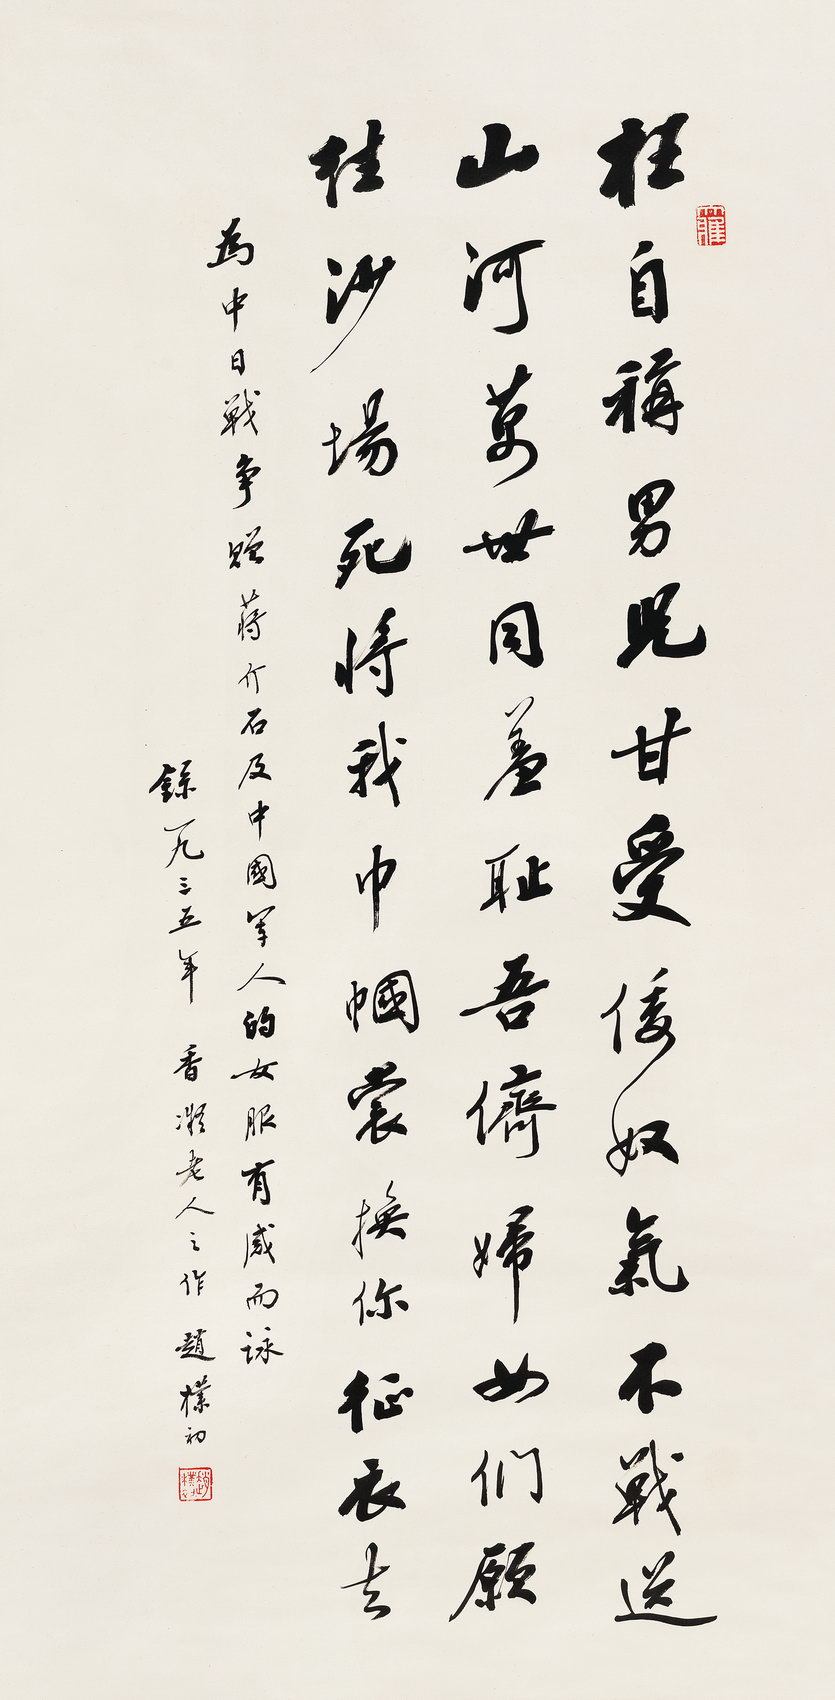 枉自稱男兒甘受倭奴氣不戰送
山河萬世同羞耻吾儕婦女們願
往沙場死將我巾幗裳換你征衣去
為中日戰爭贈蔣介石及中國軍人的女服有感而詠
錄一九三五年 香凝老人之作 趙樸初
趙樸初